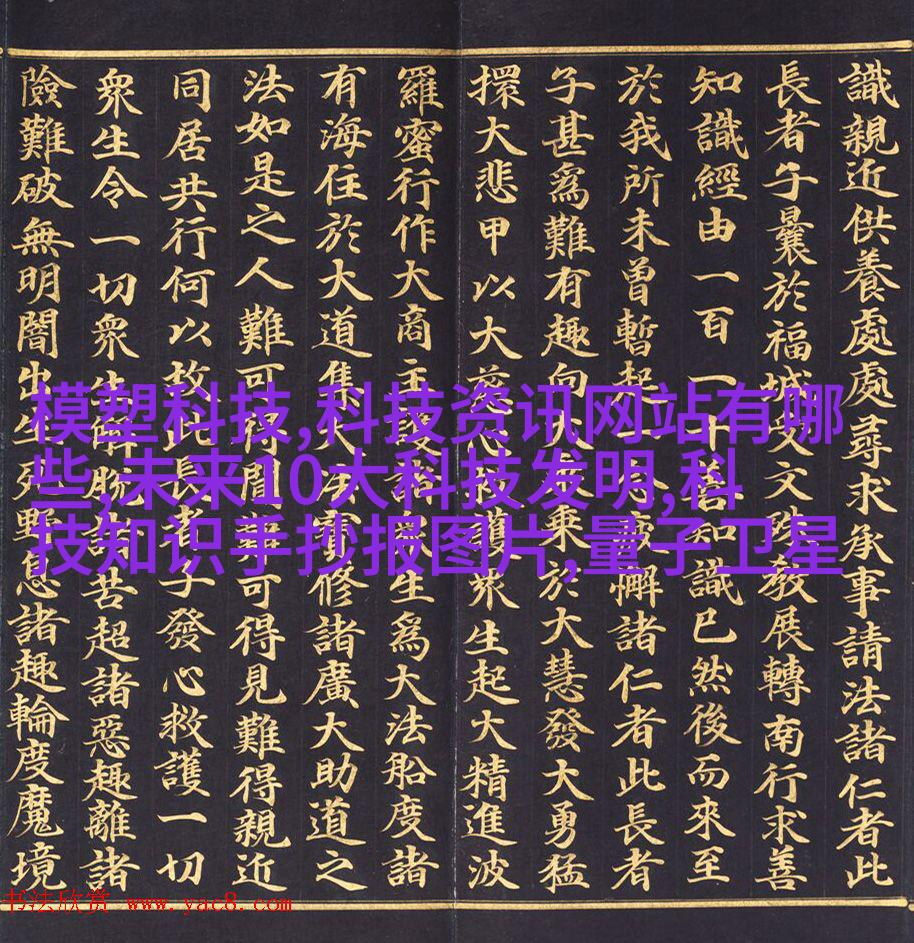 識親近供養處處尋求承事請法諸仁者此
長者子曩於福城受文殊教展轉南行求善
知識經由一百一十善知識已然後而來至
於我所未曾暫起一念疲懈諸仁者此長者
子甚為難有趣向大乘乘於大慧發大勇猛
擐大悲甲以大慈心救護眾生起大精進波
羅蜜行作大商主護諸眾生為大法船度諸
有海住於大道集大法寶修諸廣大助道之
法如是之人難可得聞難可得見難得親近
同居共行何以故此長者子發心救護一切
眾生令一切眾生解脫諸苦超諸惡趣離諸
險難破無明闇出生死野息諸趣輪度魔境
模塑科技,科技资讯网站有哪
些,未来10大科技发明,科
技知识手抄报图片,量子卫星
书法欣赏 www.yac8.com